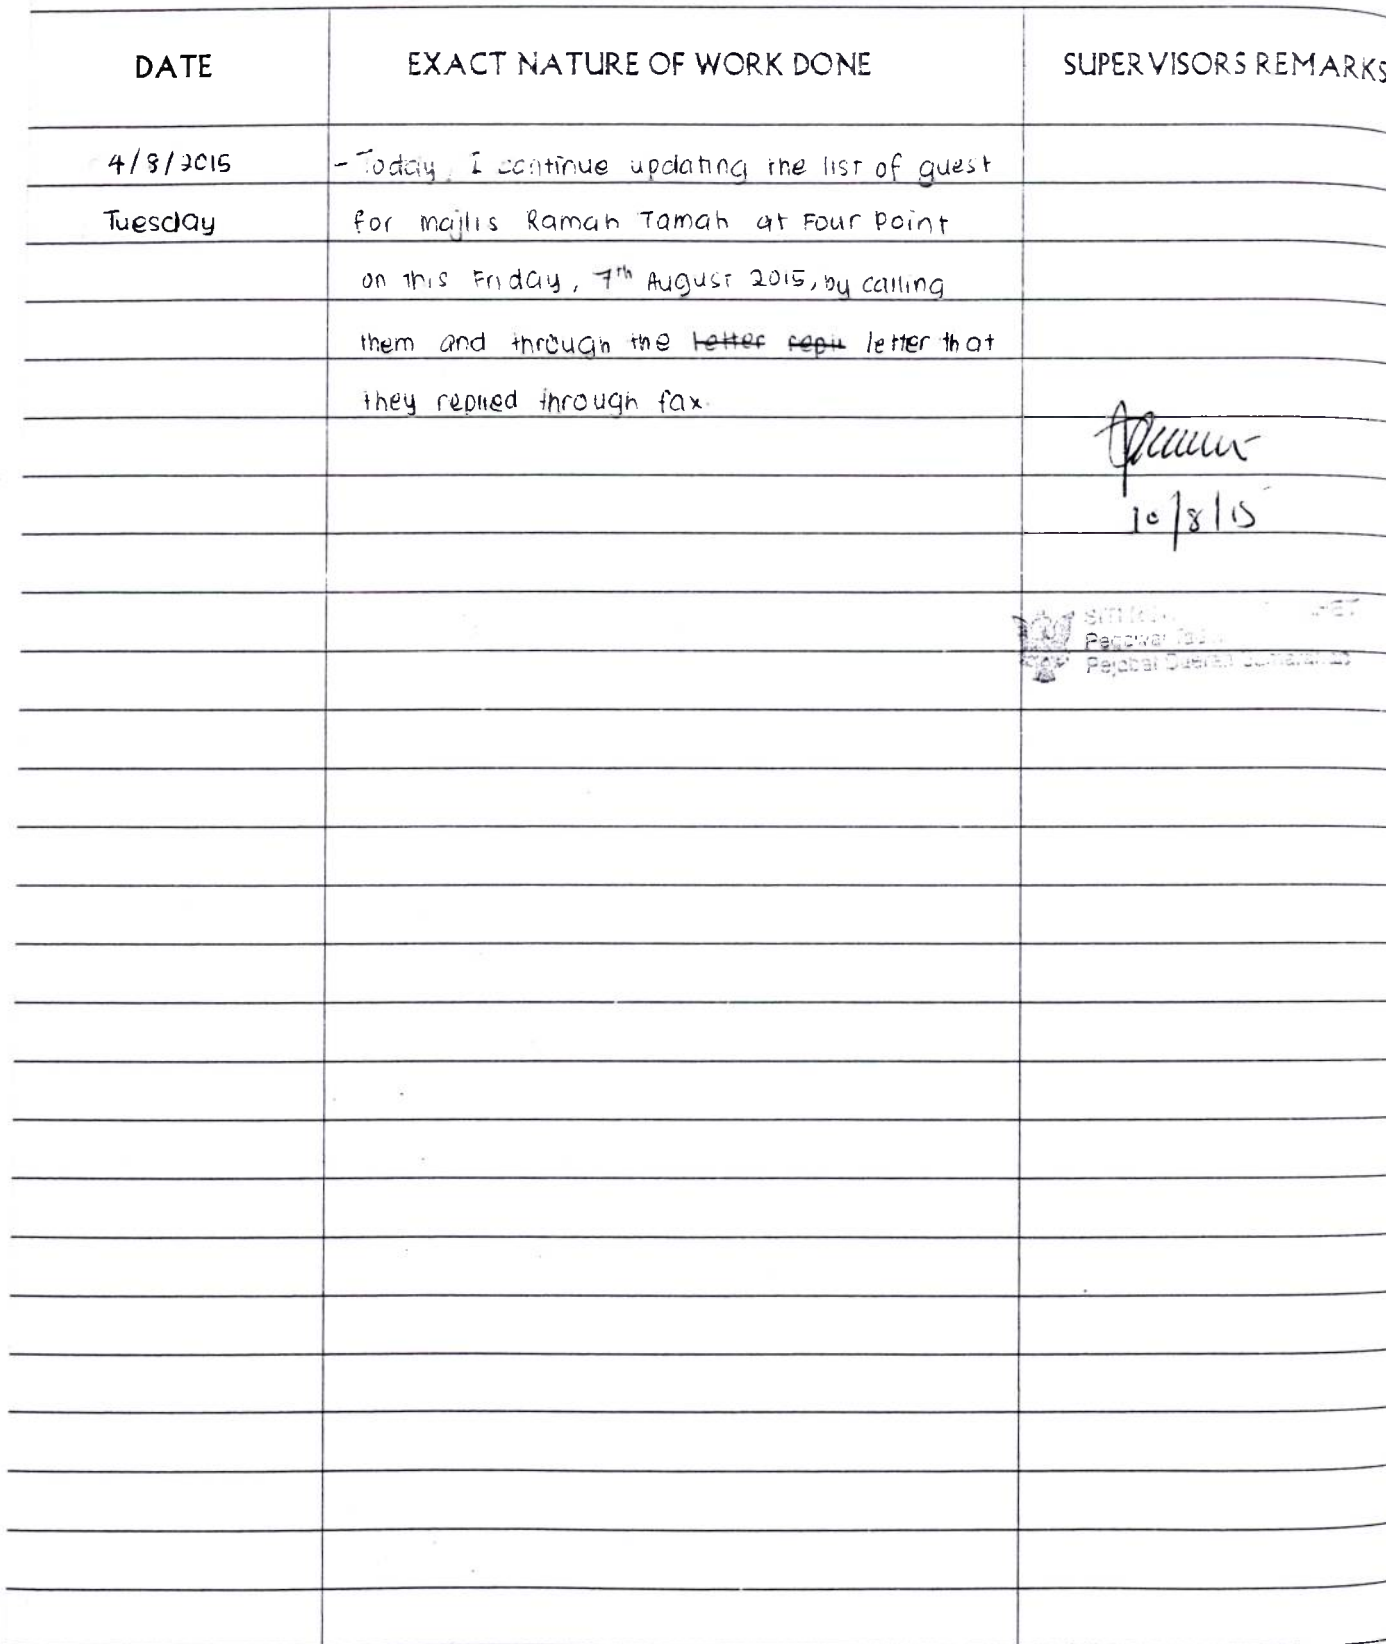 DATE EXACT NATURE OF WORK DONE SUPERVISORS REMARKS
4/8/2015 - Today, I continue updating the list of guest
Tuesday for majlis Ramah Tamah at Four Point
on this Friday, 7th August 2015, by calling
them and through the letter repli letter that
they replied through fax.
10/8/15
Pegawai
Pejabat Daerah Samarahan